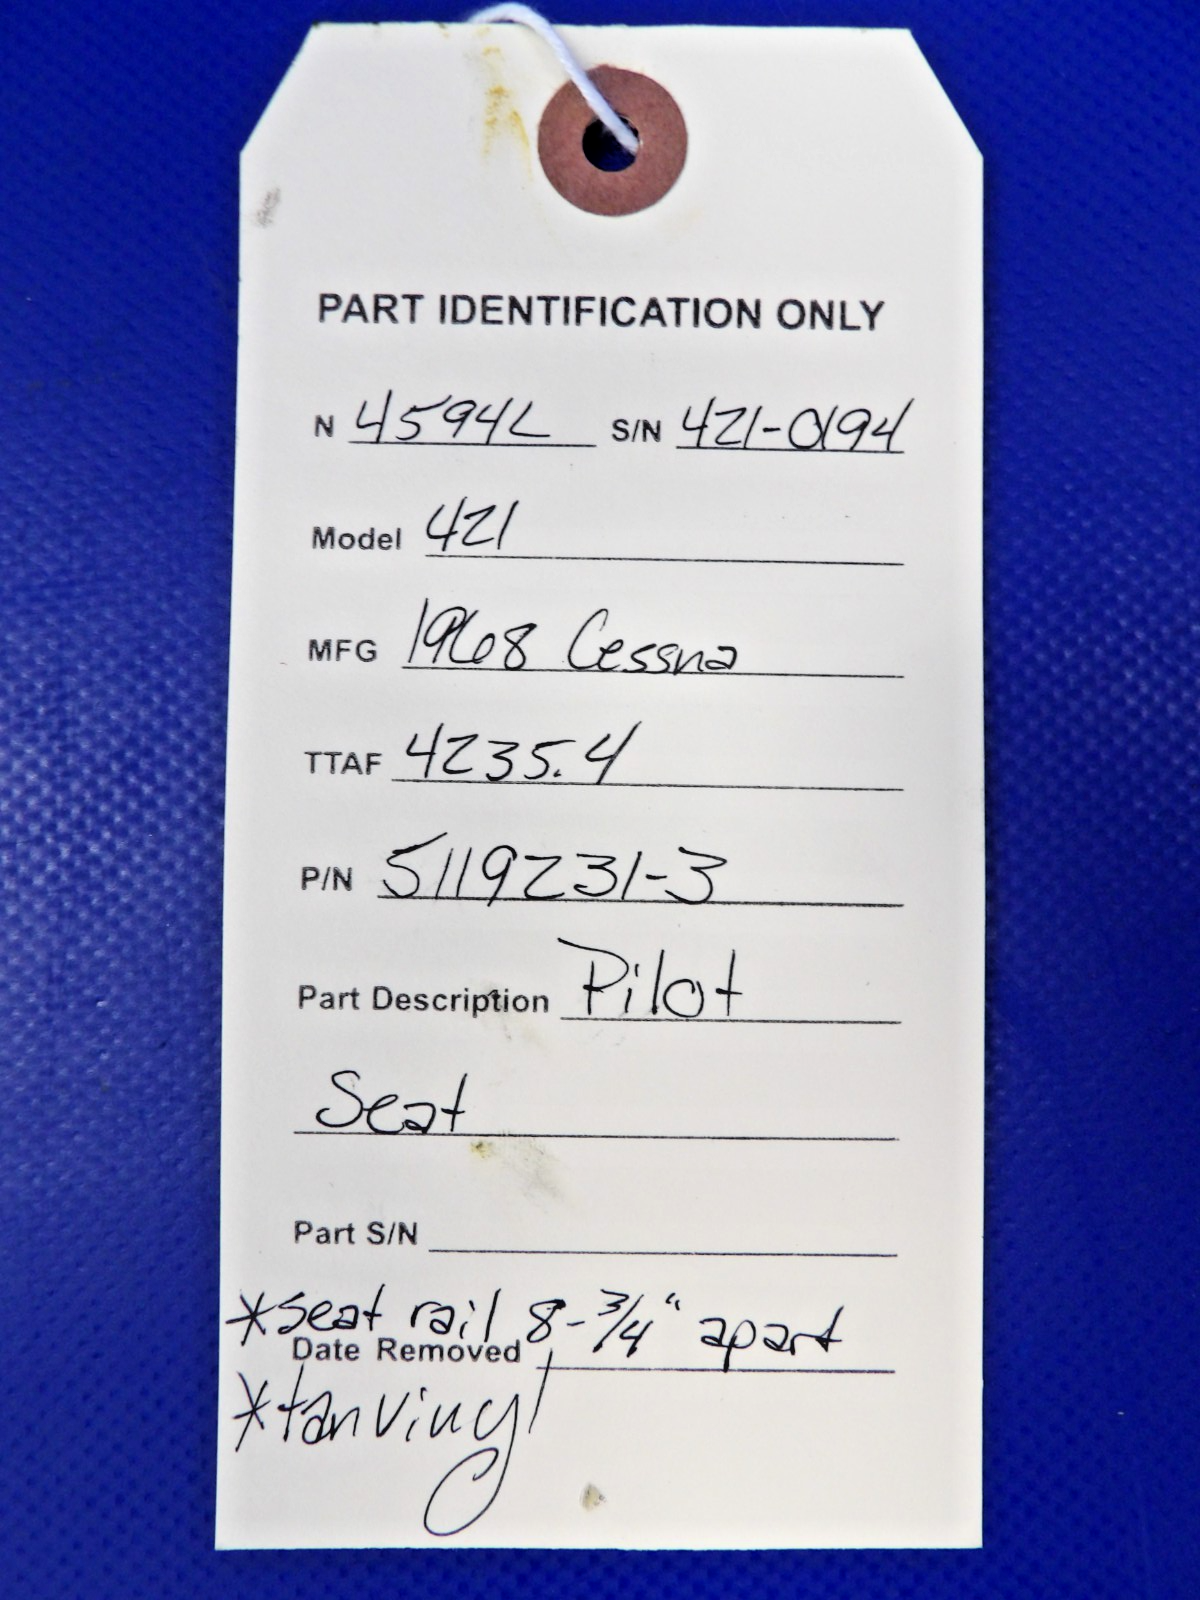 PART IDENTIFICATION ONLY
N 4594L S/N 421-0194
Model 421
MFG 1968 Cessna
TTAF 4235.4
P/N 5119231-3
Part Description Pilot
Seat
Part S/N
*seat rail 8-3/4" apart
Date Removed
*tan vinyl